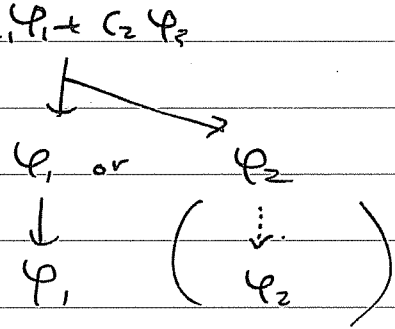 φ₁ + C₂ φ₂
φ₁ or φ₂
φ₁ ( φ₂ )